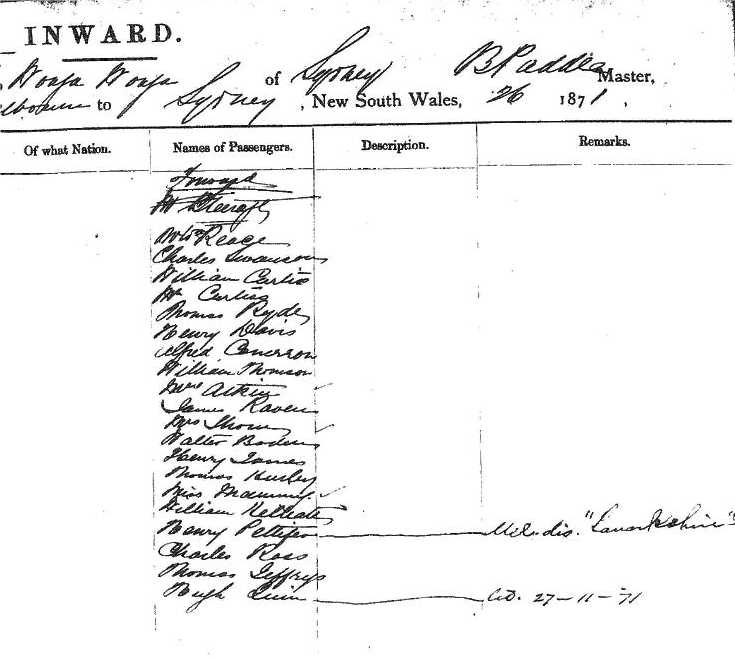 INWARD.
Wonga Wonga of Sydney B Paddle Master,
to Sydney, New South Wales, 26 1871,
Of what Nation. Names of Passengers. Description. Remarks.
Forward
Mr
Reage
Charles Swanson
William Curtis
Mr Curtiss
Thomas Ryder
Henry Davis
Alfred Cameron
William Thomson
Mrs Atkin
James Raven
Mrs Thom
Walter Boden
Henry James
Thomas Hurley
Miss
William
Henry Pettifer Mil. dis. "Lanarkshire"
Charles Ross
Thomas Jeffrys
Hugh Quin 27-11-71